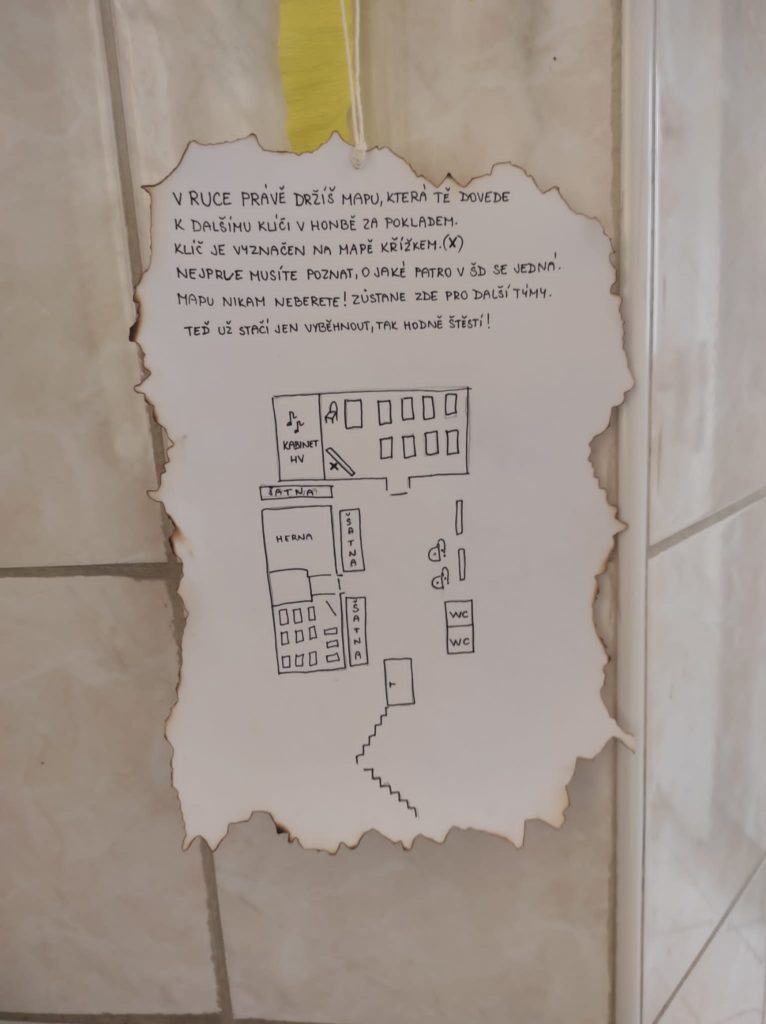 V RUCE PRÁVĚ DRŽÍŠ MAPU, KTERÁ TĚ DOVEDE
K DALŠÍMU KLÍČI V HONBĚ ZA POKLADEM.
KLÍČ JE VYZNAČEN NA MAPĚ KŘÍŽKEM.(X)
NEJPRVE MUSÍTE POZNAT, O JAKÉ PATRO V ŠD SE JEDNÁ.
MAPU NIKAM NEBERETE! ZŮSTANE ZDE PRO DALŠÍ TÝMY.
TEĎ UŽ STAČÍ JEN VYBĚHNOUT, TAK HODNĚ ŠTĚSTÍ!
KABINET
HV
X
ŠATNA
HERNA
ŠATNA
ŠATNA
WC
WC